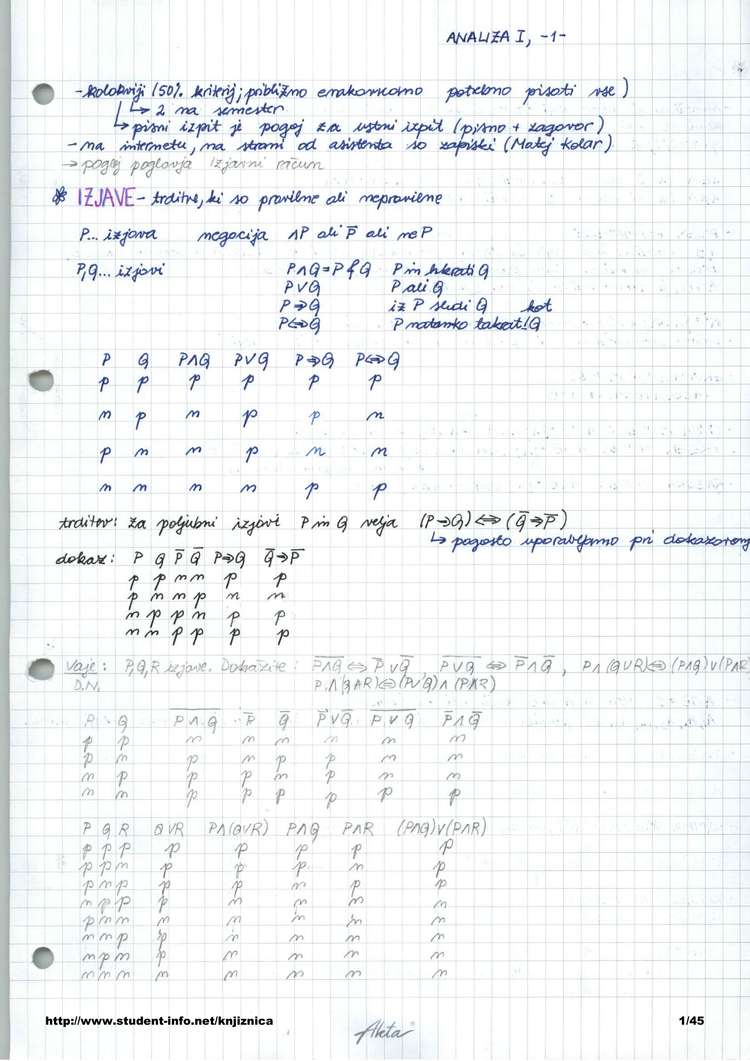 ANALIZA I, -1-
- kolokviji (50% kriterij; približno enakovredno potrebno pisati vse)
↳ 2 na semester
↳ pisni izpit je pogoj za ustni izpit (pisno + zagovor)
- na internetu, na strani od asistenta so zapiski (Matej Kolar)
→ poglej poglavja Izjavni račun
* IZJAVE - trditve, ki so pravilne ali nepravilne
P... izjava negacija ¬P ali P̅ ali ne P
P,Q... izjavi P∧Q = P & Q P in hkrati Q
P∨Q P ali Q
P⇒Q iz P sledi Q
P⇔Q P natanko takrat kot Q
P Q P∧Q P∨Q P⇒Q P⇔Q
p p p p p p
n p n p p n
p n n p n n
n n n n p p
trditev: za poljubni izjavi P in Q velja (P⇒Q) ⇔ (Q̅⇒P̅)
↳ pogosto uporabljamo pri
dokaz: P Q P̅ Q̅ P⇒Q Q̅⇒P̅
p p n n p p
p n n p n n
n p p n p p
n n p p p p
Vaje: P,Q,R izjave. Dokažite: P̅∧̅Q̅ ⇔ P̅∨Q̅, P̅∨̅Q̅ ⇔ P̅∧Q̅, P∧(Q∨R)⇔(P∧Q)∨(P∧R)
D.N. P∧(Q∧R)⇔(P∨Q)∧(P∧R)
P Q P̅∧̅Q̅ P̅ Q̅ P̅∨Q̅ P̅∨̅Q̅ P̅∧Q̅
p p n n n n n n
p n p n p p n n
n p p p n p n n
n n p p p p p p
P Q R Q∨R P∧(Q∨R) P∧Q P∧R (P∧Q)∨(P∧R)
p p p p p p p p
p p n p p p n p
p n p p p n p p
n p p p n n n n
p n n n n n n n
n n p p n n n n
n p n p n n n n
n n n n n n n n
http://www.student-info.net/knjiznica 1/45
Akta